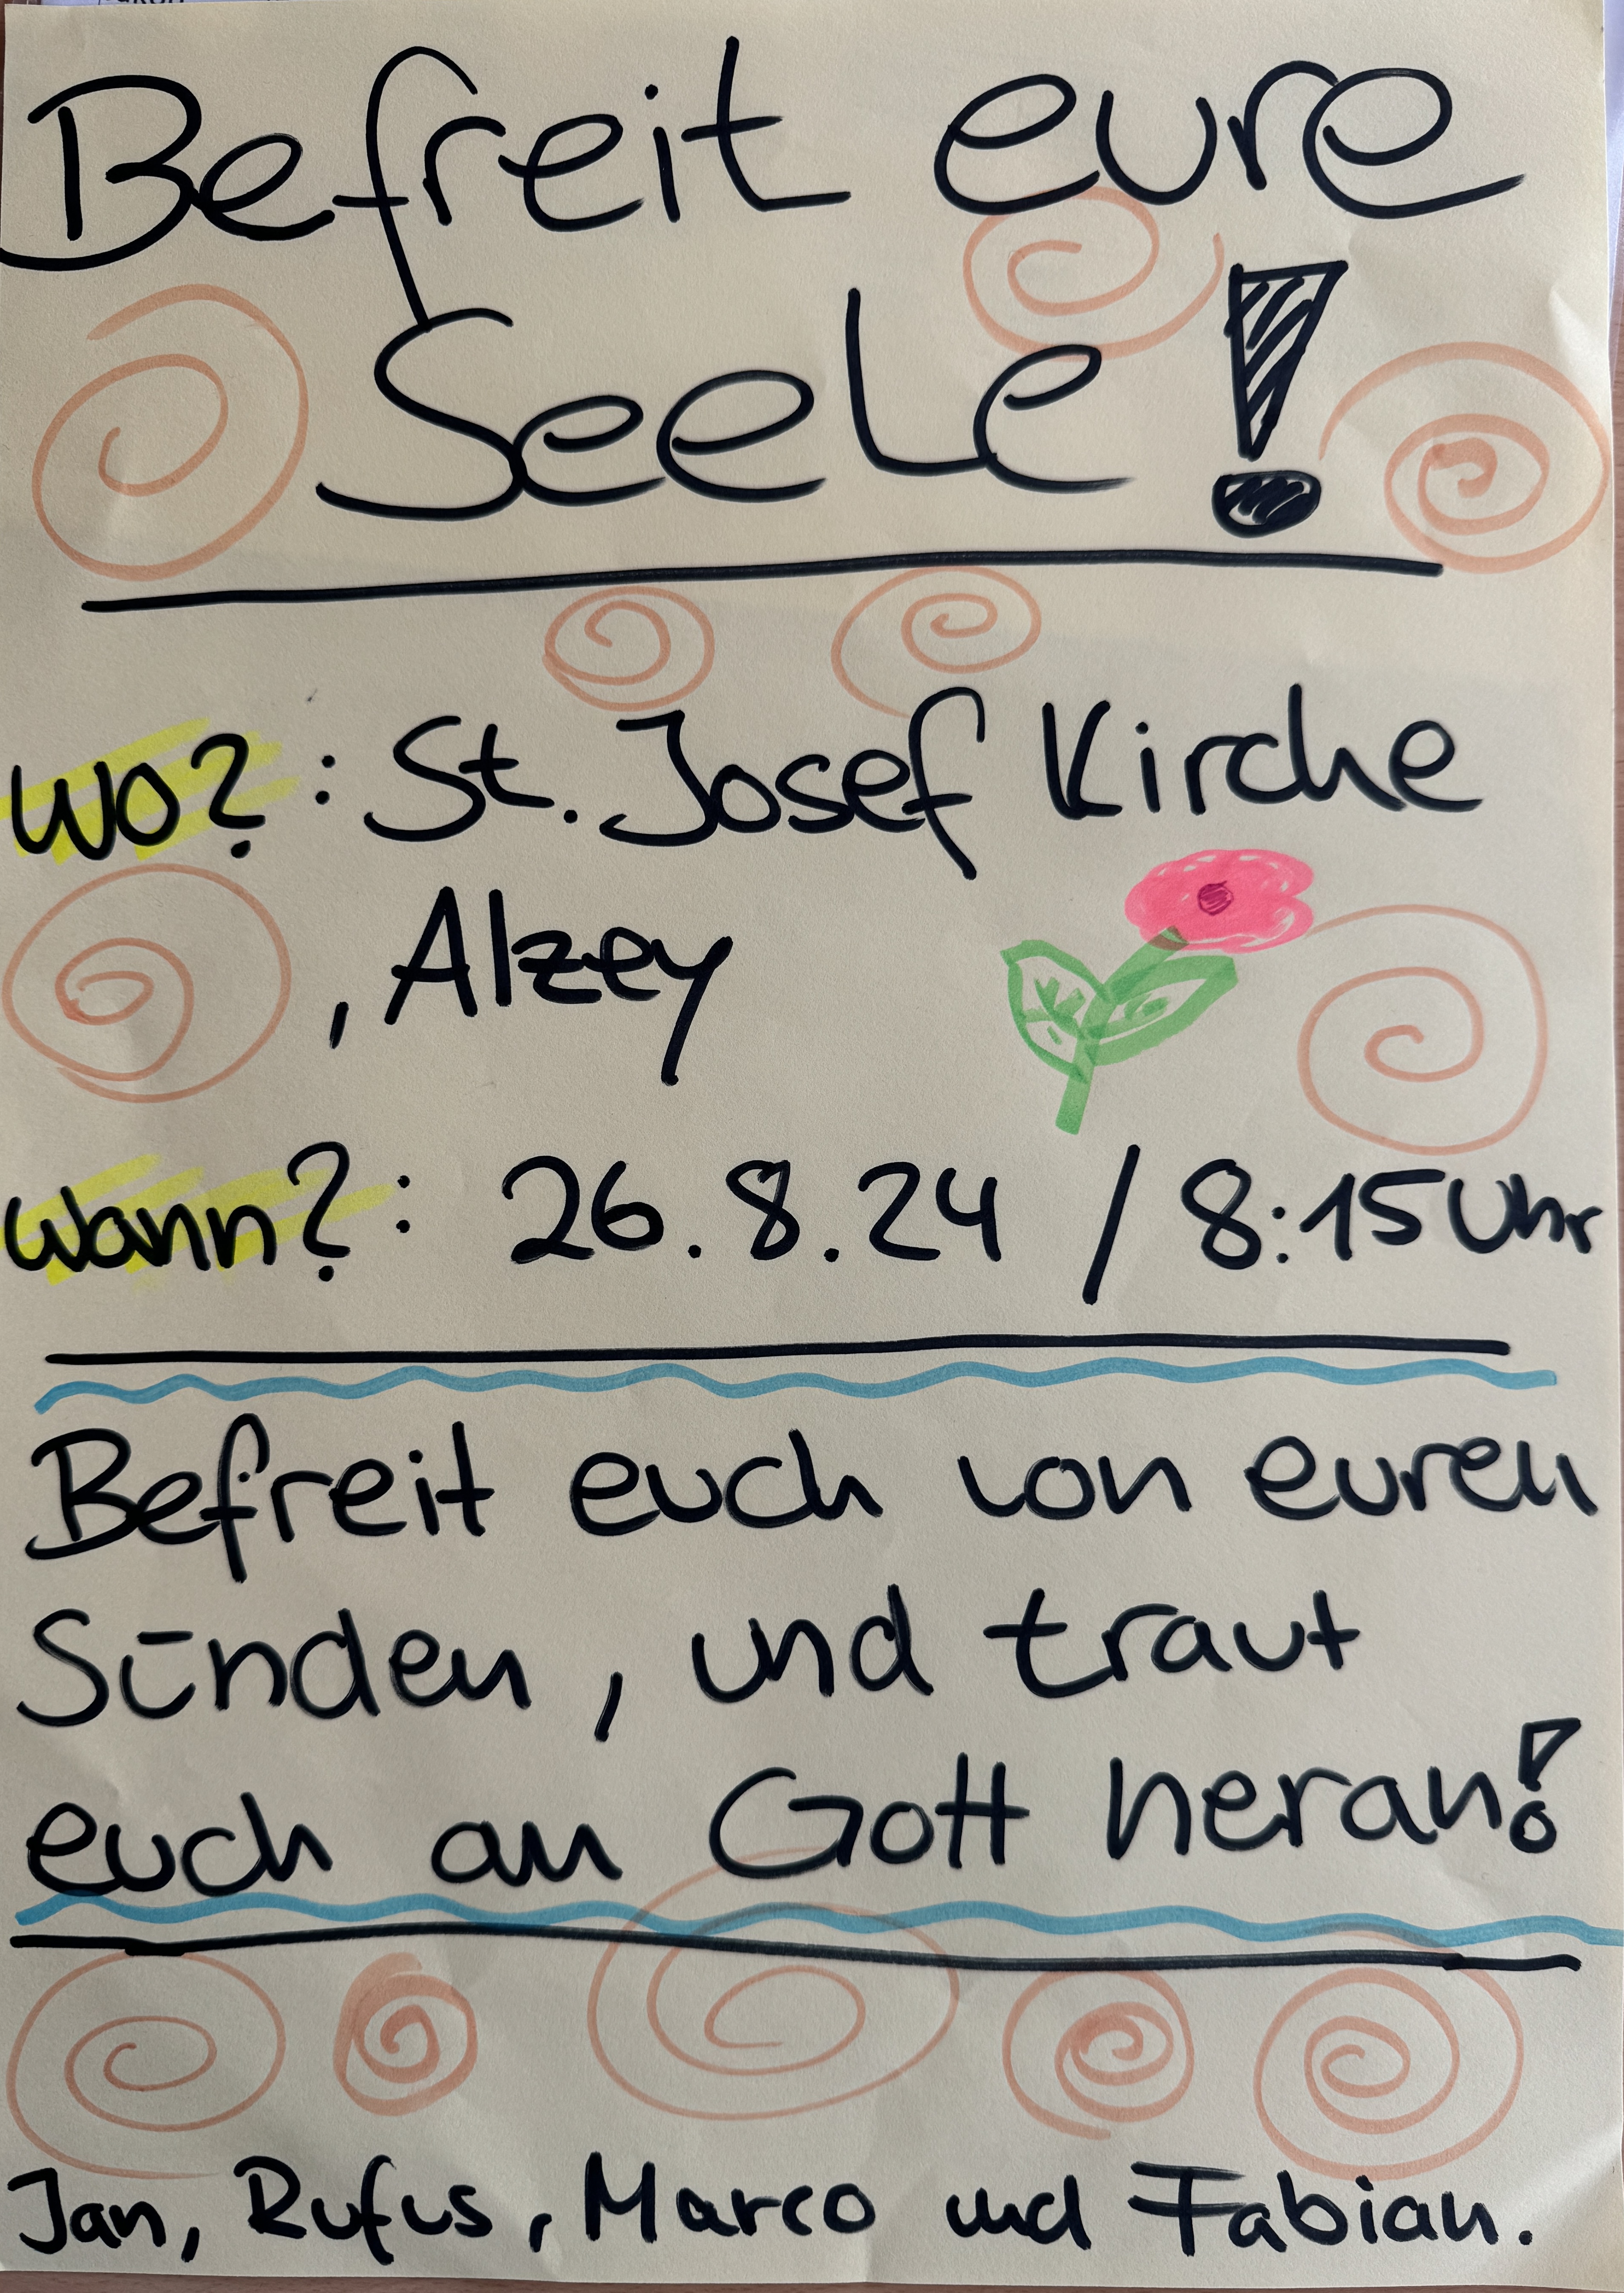 Befreit eure
Seele!
Wo?: St. Josef Kirche
, Alzey
Wann?: 26.8.24 / 8:15 Uhr
Befreit euch von euren
Sünden, und traut
euch an Gott heran!
Jan, Rufus, Marco und Fabian.